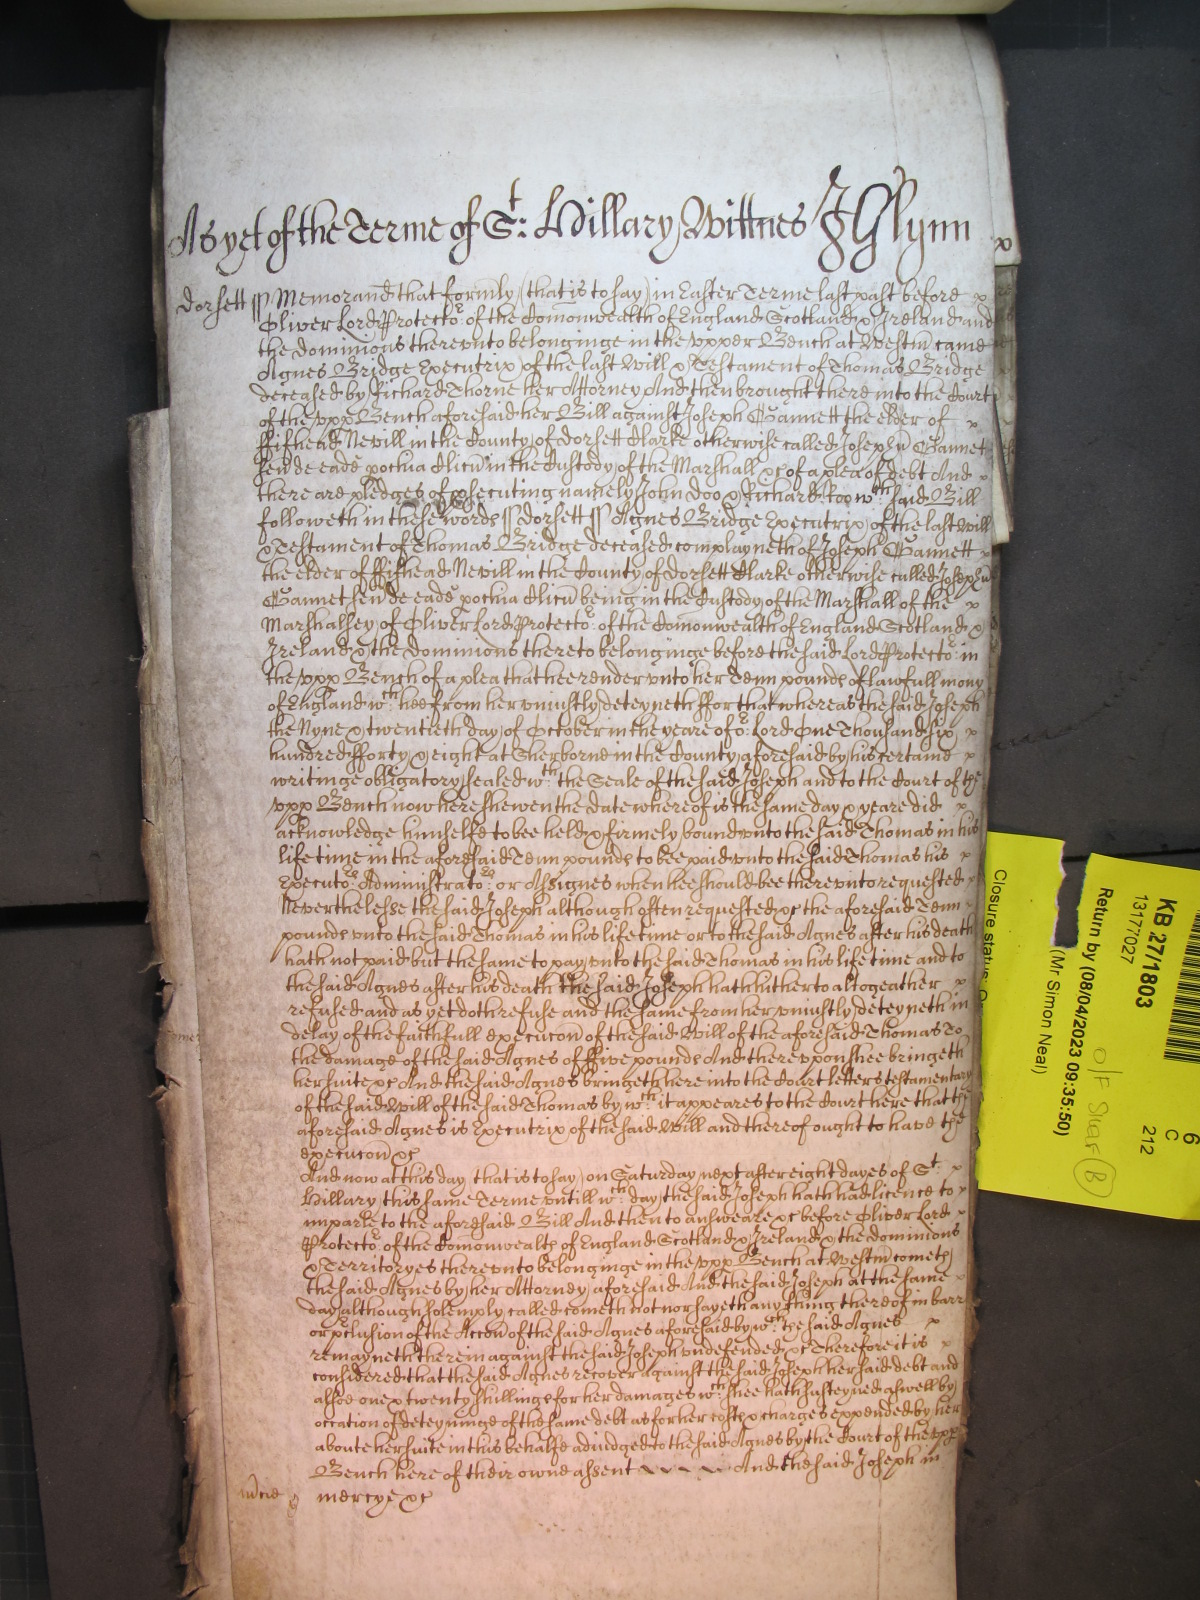 As yet of the Terme of St: Hillary Wittnes J Glynn
Dorsett ss Memorand that formly (that is to say) in Easter Terme last past before
Oliver Lord Protector of the Comonwealth of England Scotland & Ireland and
the Dominions thereunto belonginge in the upper Bench at Westm came
Agnes Bridge Executrix of the last Will & Testament of Thomas Bridge
deceased by Richard Thorne her Attorney And then brought there into the Court
of the upp Bench aforesaid her Bill against Joseph Gannett the elder of
Fifhead Nevill in the County of Dorsett Clarke otherwise called Joseph Gannet
sen de ead pochia Clicu in the Custody of the Marshall &c of a plea of debt And
there are pledges of psecuting namely John Doo & Richard Roo wch said Bill
followeth in these words ss Dorsett ss Agnes Bridge Executrix of the last Will
& Testament of Thomas Bridge deceased complayneth of Joseph Gannett
the elder of Fifhead Nevill in the County of Dorsett Clarke otherwise called Joseph
Gannet sen de ead pochia Clicu being in the Custody of the Marshall of the
Marshallsey of Oliver Lord Protector of the Comonwealth of England Scotland &
Ireland & the Dominions thereto belonginge before the said Lord Protector in
the upp Bench of a plea that hee render unto her Tenn pounds of lawfull mony
of England wch hee from her uniustly deteyneth For that whereas the said Joseph
the Nyne & twentieth day of October in the yeare of or Lord One Thousand six
hundred Forty & eight at Sherborne in the County aforesaid by his certaine
writinge obligatory sealed wth the Seale of the said Joseph and to the Court of the
upp Bench now here shewen the date whereof is the same day & yeare did
acknowledge himselfe to bee held & firmely bound unto the said Thomas in his
life time in the aforesaid Tenn pounds to bee paid unto the said Thomas his
Executors Administrators or Assignes when hee should bee thereunto requested
Neverthelesse the said Joseph although often requested &c the aforesaid Tenn
pounds unto the said Thomas in his life time or to the said Agnes after his death
hath not paid but the same to pay unto the said Thomas in his life time and to
the said Agnes after his death the said Joseph hath hitherto altogeather
refused and as yet doth refuse and the same from her uniustly deteyneth in
delay of the faithfull execucon of the said Will of the aforesaid Thomas To
the damage of the said Agnes of Five pounds And thereuppon shee bringeth
her suite &c And the said Agnes bringeth here into the Court letters testamentary
of the said Will of the said Thomas by wch it appeares to the Court here that the
aforesaid Agnes is Executrix of the said Will and thereof ought to have the
execucon &c
And now at this day (that is to say) on Saturday next after eight dayes of St
Hillary this same Terme untill wch day the said Joseph hath had licence to
imparle to the aforesaid Bill And then to answeare &c before Oliver Lord
Protector of the Comonwealth of England Scotland & Ireland & the dominions
& Territoryes thereunto belonginge in the upp Bench at Westm cometh
the said Agnes by her Attorney aforesaid And the said Joseph at the same
day although solemply called cometh not nor sayeth any thing thereof in barr
or pclusion of the Accon of the said Agnes aforesaid by wch the said Agnes
remayneth therein against the said Joseph undefended &c Therefore it is
considered that the said Agnes recover against the said Joseph her said debt and
alsoe one & twenty shillings for her damages wch shee hath susteyned aswell by
occation of deteyninge of the same debt as for her costs & charges expended by her
aboute her suite in this behalfe adiudged to the said Agnes by the Court of the upp
Bench here of their owne assent And the said Joseph in
mercye &c
KB 27/1803
13177027
Return by (08/04/2023 09:35:50)
(Mr Simon Neal)
Closure status:
6
C
212
O/F Shelf B